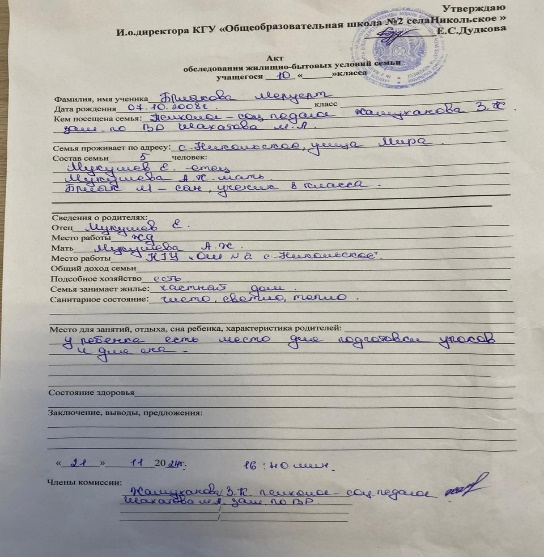 Утверждаю
И.о.директора КГУ «Общеобразовательная школа №2 селаНикольское »
Е.С.Дудкова
Акт
обследования жилищно-бытовых условий семьи
учащегося 10 «____»класса
Фамилия, имя ученика Мергерт
Дата рождения 07.10.2008г. класс
Кем посещена семья: Психолог – соц.педагог Жамуханова З.К.
зам. по ВР Шакатова М.А.
Семья проживает по адресу: с.Никольское, улица Мира.
Состав семьи 5 человек:
Мукушев Е. - отец
Мукушева А.К. мать.
М – сын, ученик 8 класса.
Сведения о родителях:
Отец Мукушев Е.
Место работы ЖД
Мать Мукушева А.К.
Место работы КГУ "ОШ №2 с.Никольское".
Общий доход семьи
Подсобное хозяйство есть
Семья занимает жилье: частный дом.
Санитарное состояние: чисто, светло, тепло.
Место для занятий, отдыха, сна ребенка, характеристика родителей:
у ребенка есть место для подготовки уроков
и для сна.
Состояние здоровья
Заключение, выводы, предложения:
« 21 » 11 2024г. 16:40 мин.
Члены комиссии:
Жамуханова З.К. психолог – соц.педагог
Шакатова М.А. зам. по ВР.